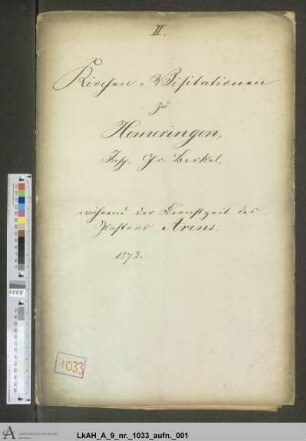 II.
Kirchen-Visitationen
zu
Hemeringen,
Insp. Gr. Berkel,
während der Dienstzeit des
Pastors Arens.
1873.
1033
LkAH_A_9_nr._1033_aufn._001